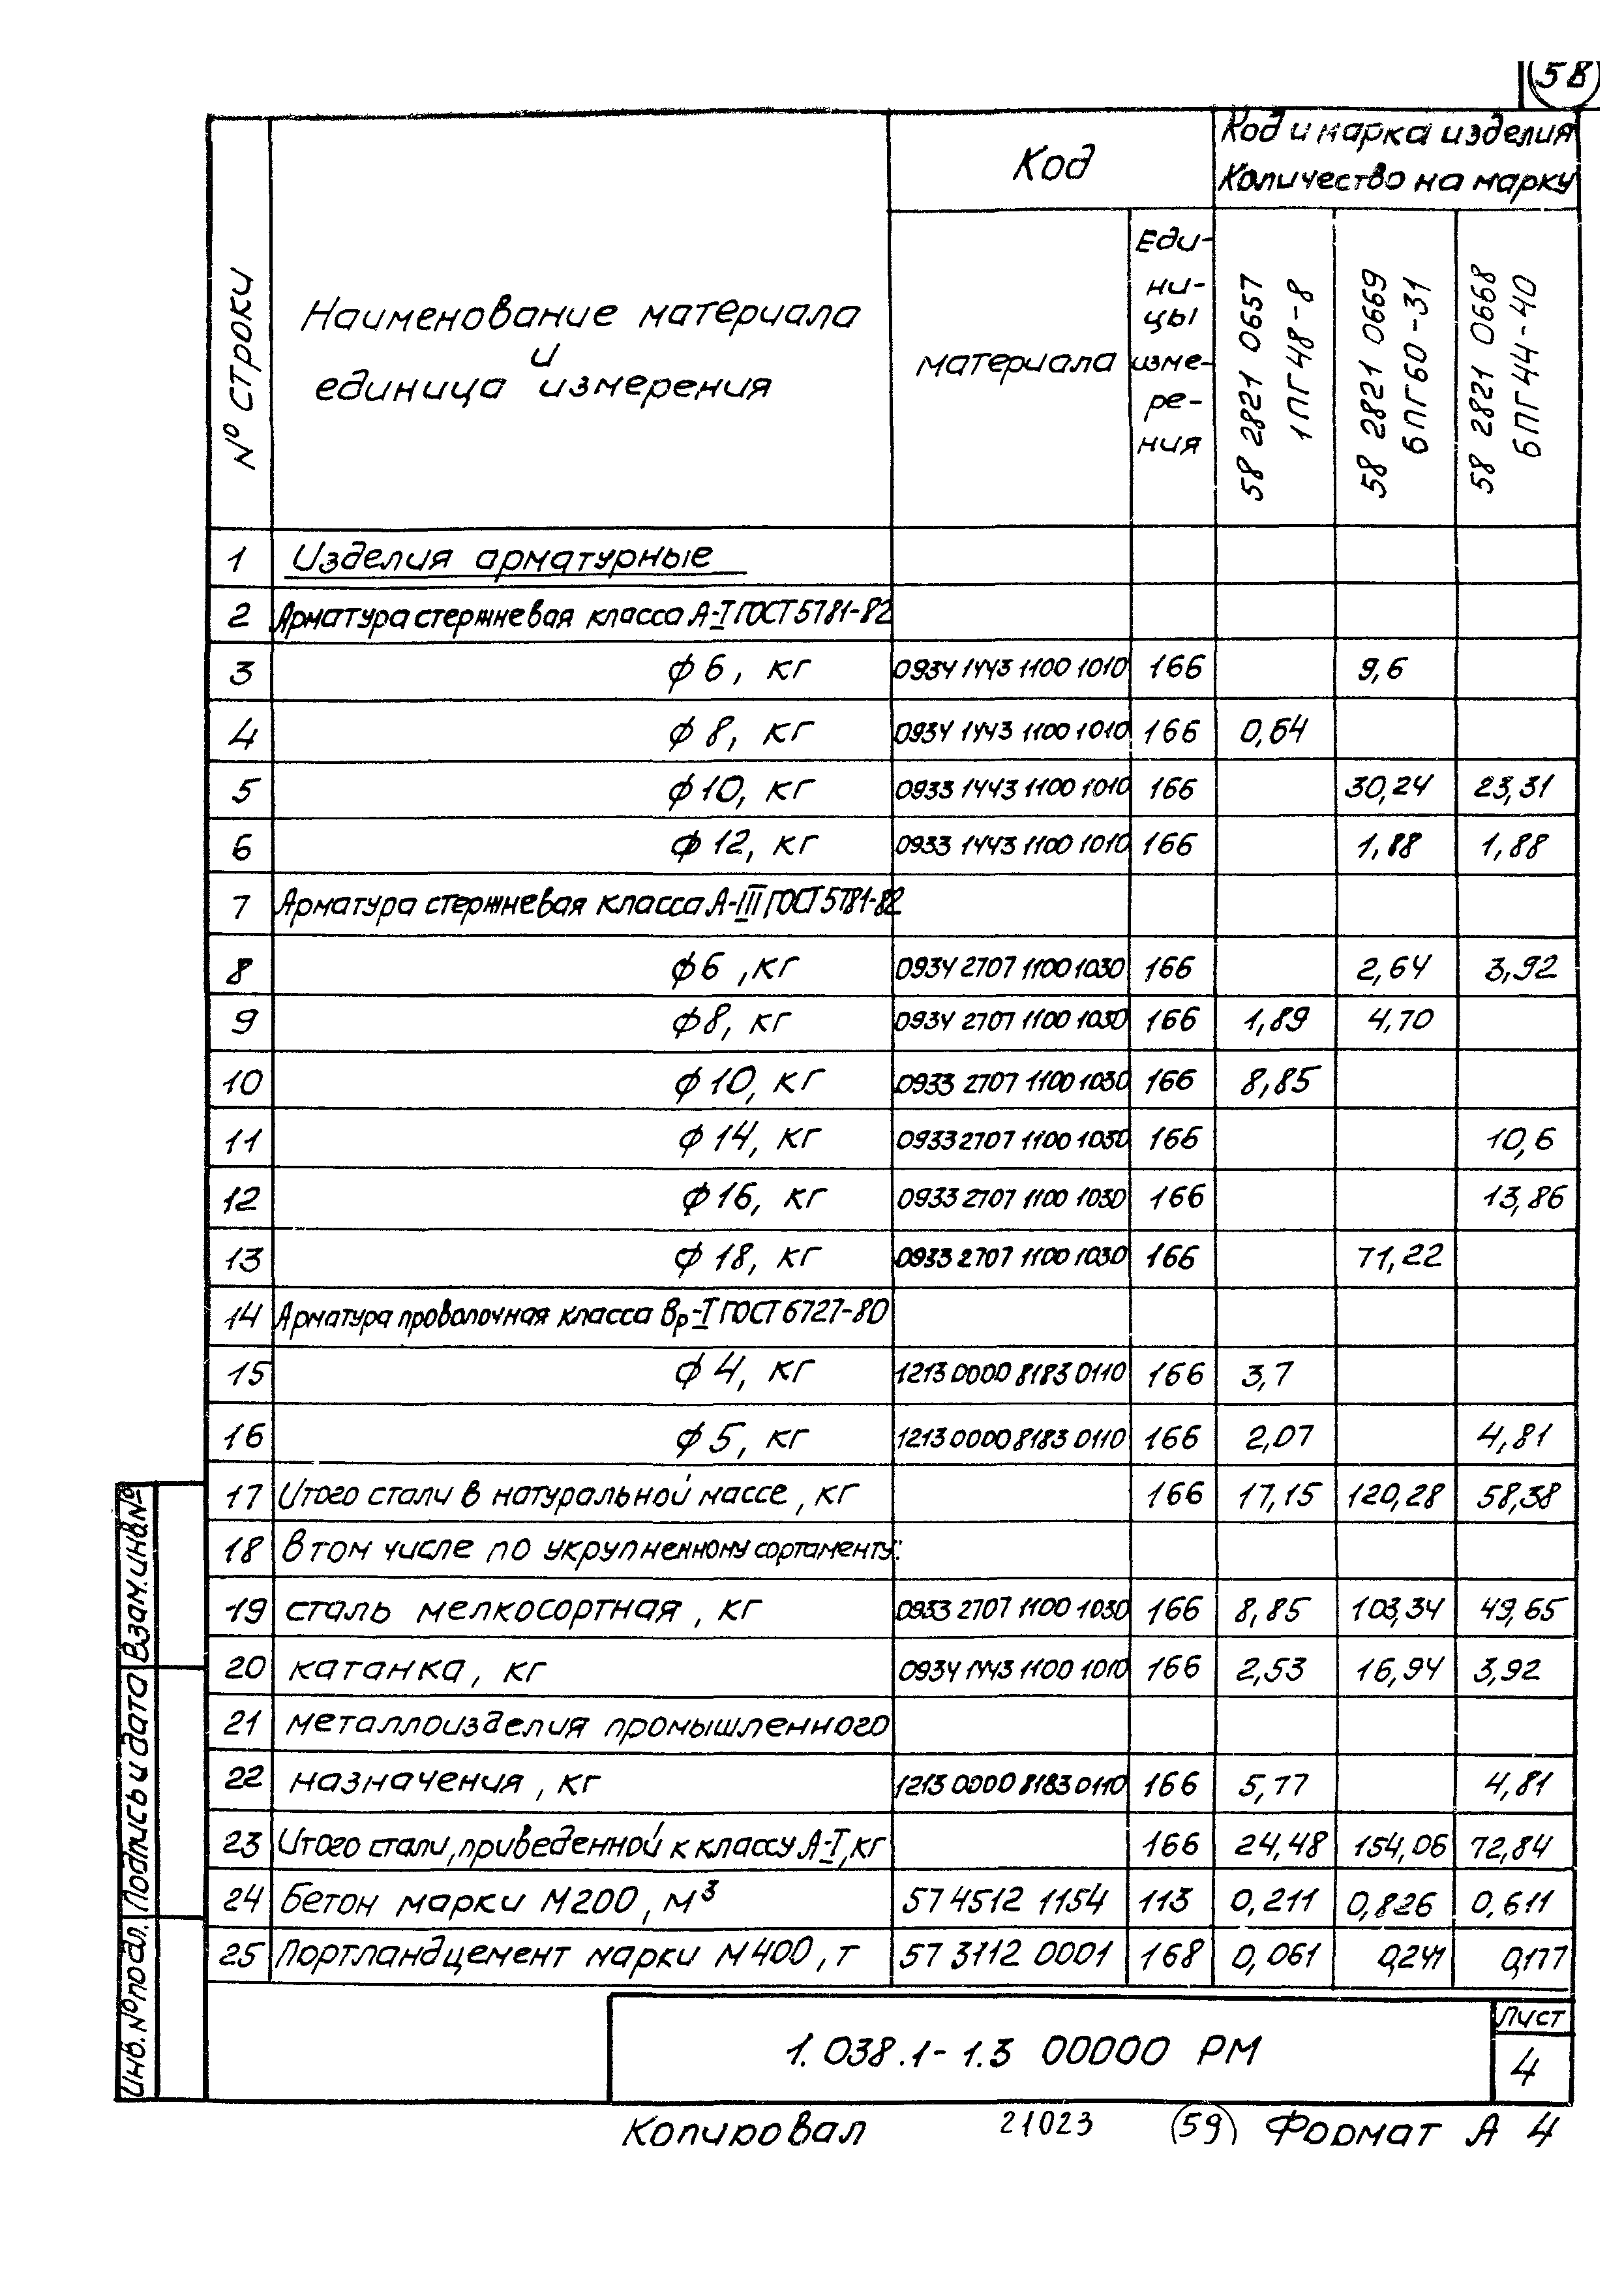 58
№ строки
Наименование материала
и
единица измерения
Код
Код и марка изделия
Количество на марку
материала
Еди-
ни-
цы
изме-
ре-
ния
58 2821 0657
1ПГ48-8
58 2821 0669
БПГ60-31
58 2821 0668
БПГ44-40
1 Изделия арматурные
2 Арматура стержневая класса А-I ГОСТ 5781-82
3 ф6, кг 0934 1443 1100 1010 166 9,6
4 ф8, кг 0934 1443 1100 1010 166 0,64
5 ф10, кг 0933 1443 1100 1010 166 30,24 23,31
6 ф12, кг 0933 1443 1100 1010 166 1,88 1,88
7 Арматура стержневая класса А-III ГОСТ 5781-82
8 ф6, кг 0934 2707 1100 1030 166 2,64 3,92
9 ф8, кг 0934 2707 1100 1030 166 1,89 4,70
10 ф10, кг 0933 2707 1100 1030 166 8,85
11 ф14, кг 0933 2707 1100 1030 166 10,6
12 ф16, кг 0933 2707 1100 1030 166 13,86
13 ф18, кг 0933 2707 1100 1030 166 71,22
14 Арматура проволочная класса Вр-I ГОСТ 6727-80
15 ф4, кг 1213 0000 8183 0110 166 3,7
16 ф5, кг 1213 0000 8183 0110 166 2,07 4,81
17 Итого стали в натуральной массе, кг 166 17,15 120,28 58,38
18 В том числе по укрупненному сортаменту:
19 сталь мелкосортная, кг 0933 2707 1100 1030 166 8,85 103,34 49,65
20 катанка, кг 0934 1443 1100 1010 166 2,53 16,94 3,92
21 металлоизделия промышленного
22 назначения, кг 1213 0000 8183 0110 166 5,77 4,81
23 Итого стали, приведенной к классу А-I, кг 166 24,48 154,06 72,84
24 Бетон марки М200, м³ 57 4512 1154 113 0,211 0,826 0,611
25 Портландцемент марки М400, т 57 3112 0001 168 0,061 0,241 0,177
Взам.инв.№
Подпись и дата
Инв.№ подл.
1.038.1-1.3 00000 РМ
Лист
4
Копировал 21023 59 Формат А4